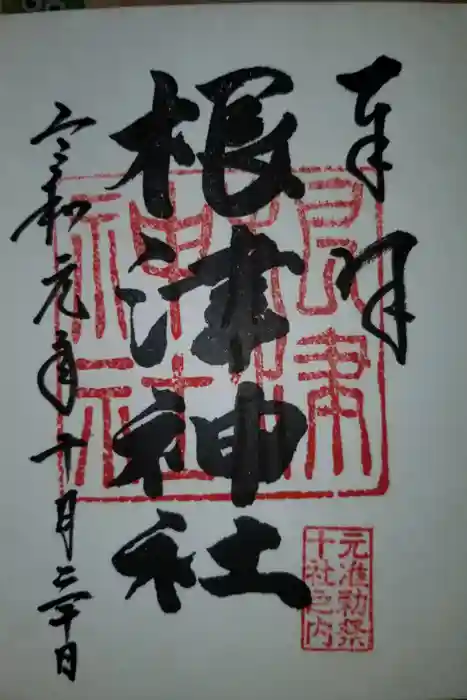 奉拝
根津神社
令和元年十月二十日
根津神社
元准勅祭
十社之内